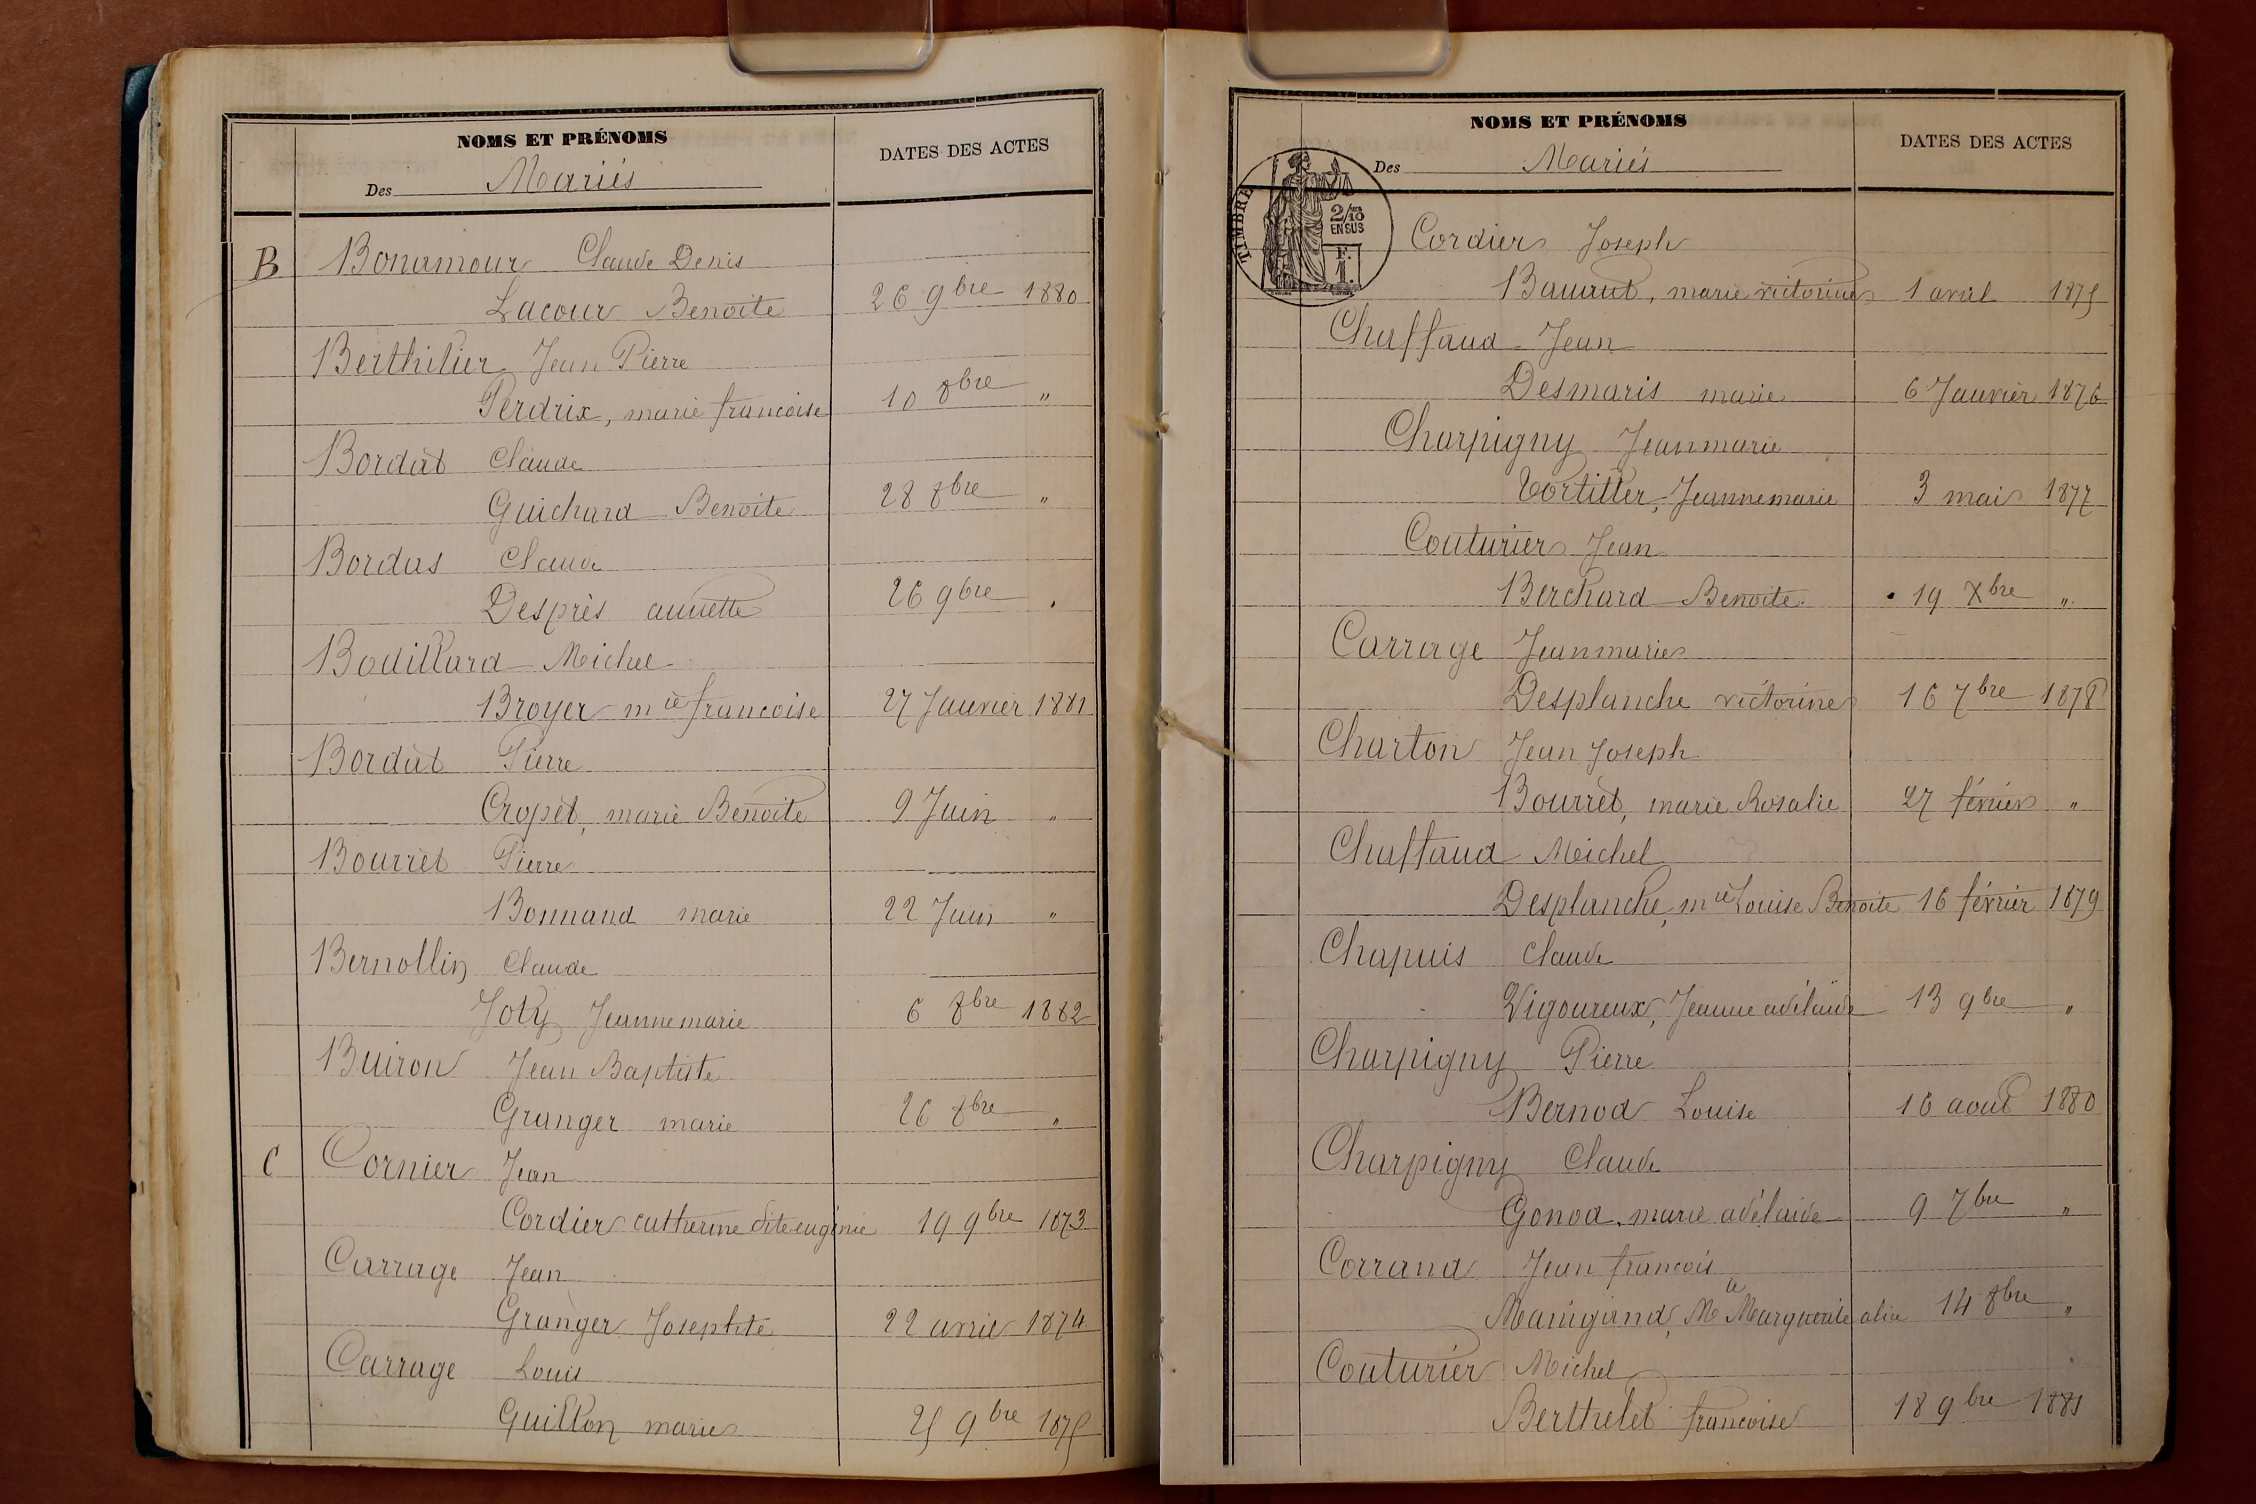 NOMS ET PRÉNOMS
DATES DES ACTES
Des Mariés
B Bonamour Claude Denis
Lacour Benoite 26 9bre 1880
Berthilier Jean Pierre
Perdrix, marie francoise 10 8bre "
Bordat Claude
Guichard Benoite 28 8bre "
Bordas Claude
Desprès annette 26 9bre "
Bouillard Michel
Broyer mie francoise 27 Janvier 1881
Bordat Pierre
Cropet, marie Benoite 9 Juin "
Bourret Pierre
Bonnand marie 22 Juin "
Bernollin Claude
Joly Jeannemarie 6 8bre 1882
Buiron Jean Baptiste
Granger marie 26 8bre "
C Cornier Jean
Cordier catherine dite eugénie 19 9bre 1873
Carrage Jean
Granger Josephte 22 avril 1874
Carrage Louis
Guillon marie 25 9bre 1875
NOMS ET PRÉNOMS
DATES DES ACTES
Des Mariés
TIMBRE
2/10
EN SUS
F.
1.
Cordier Joseph
marie victorine 1 avril 1875
Chaffaud Jean
Desmaris marie 6 Janvier 1876
Charpigny Jeanmarie
Tortiller, Jeannemarie 3 mai 1877
Couturier Jean
Berchard Benoite 19 Xbre "
Carrage Jeanmarie
Desplanche victorine 16 7bre 1878
Charton Jean Joseph
Bourret, marie Rosalie 27 février "
Chaffaud Michel
Desplanche, mie Louise Benoite 16 février 1879
Chapuis Claude
Vigoureux, Jeanne adélaïde 13 9bre "
Charpigny Pierre
Bernod Louise 16 aout 1880
Charpigny Claude
Gonod, marie adélaide 9 7bre "
Corrand Jean francois
Manigand, Mie Marguerite 14 8bre "
Couturier Michel
Berthelet francoise 18 9bre 1881